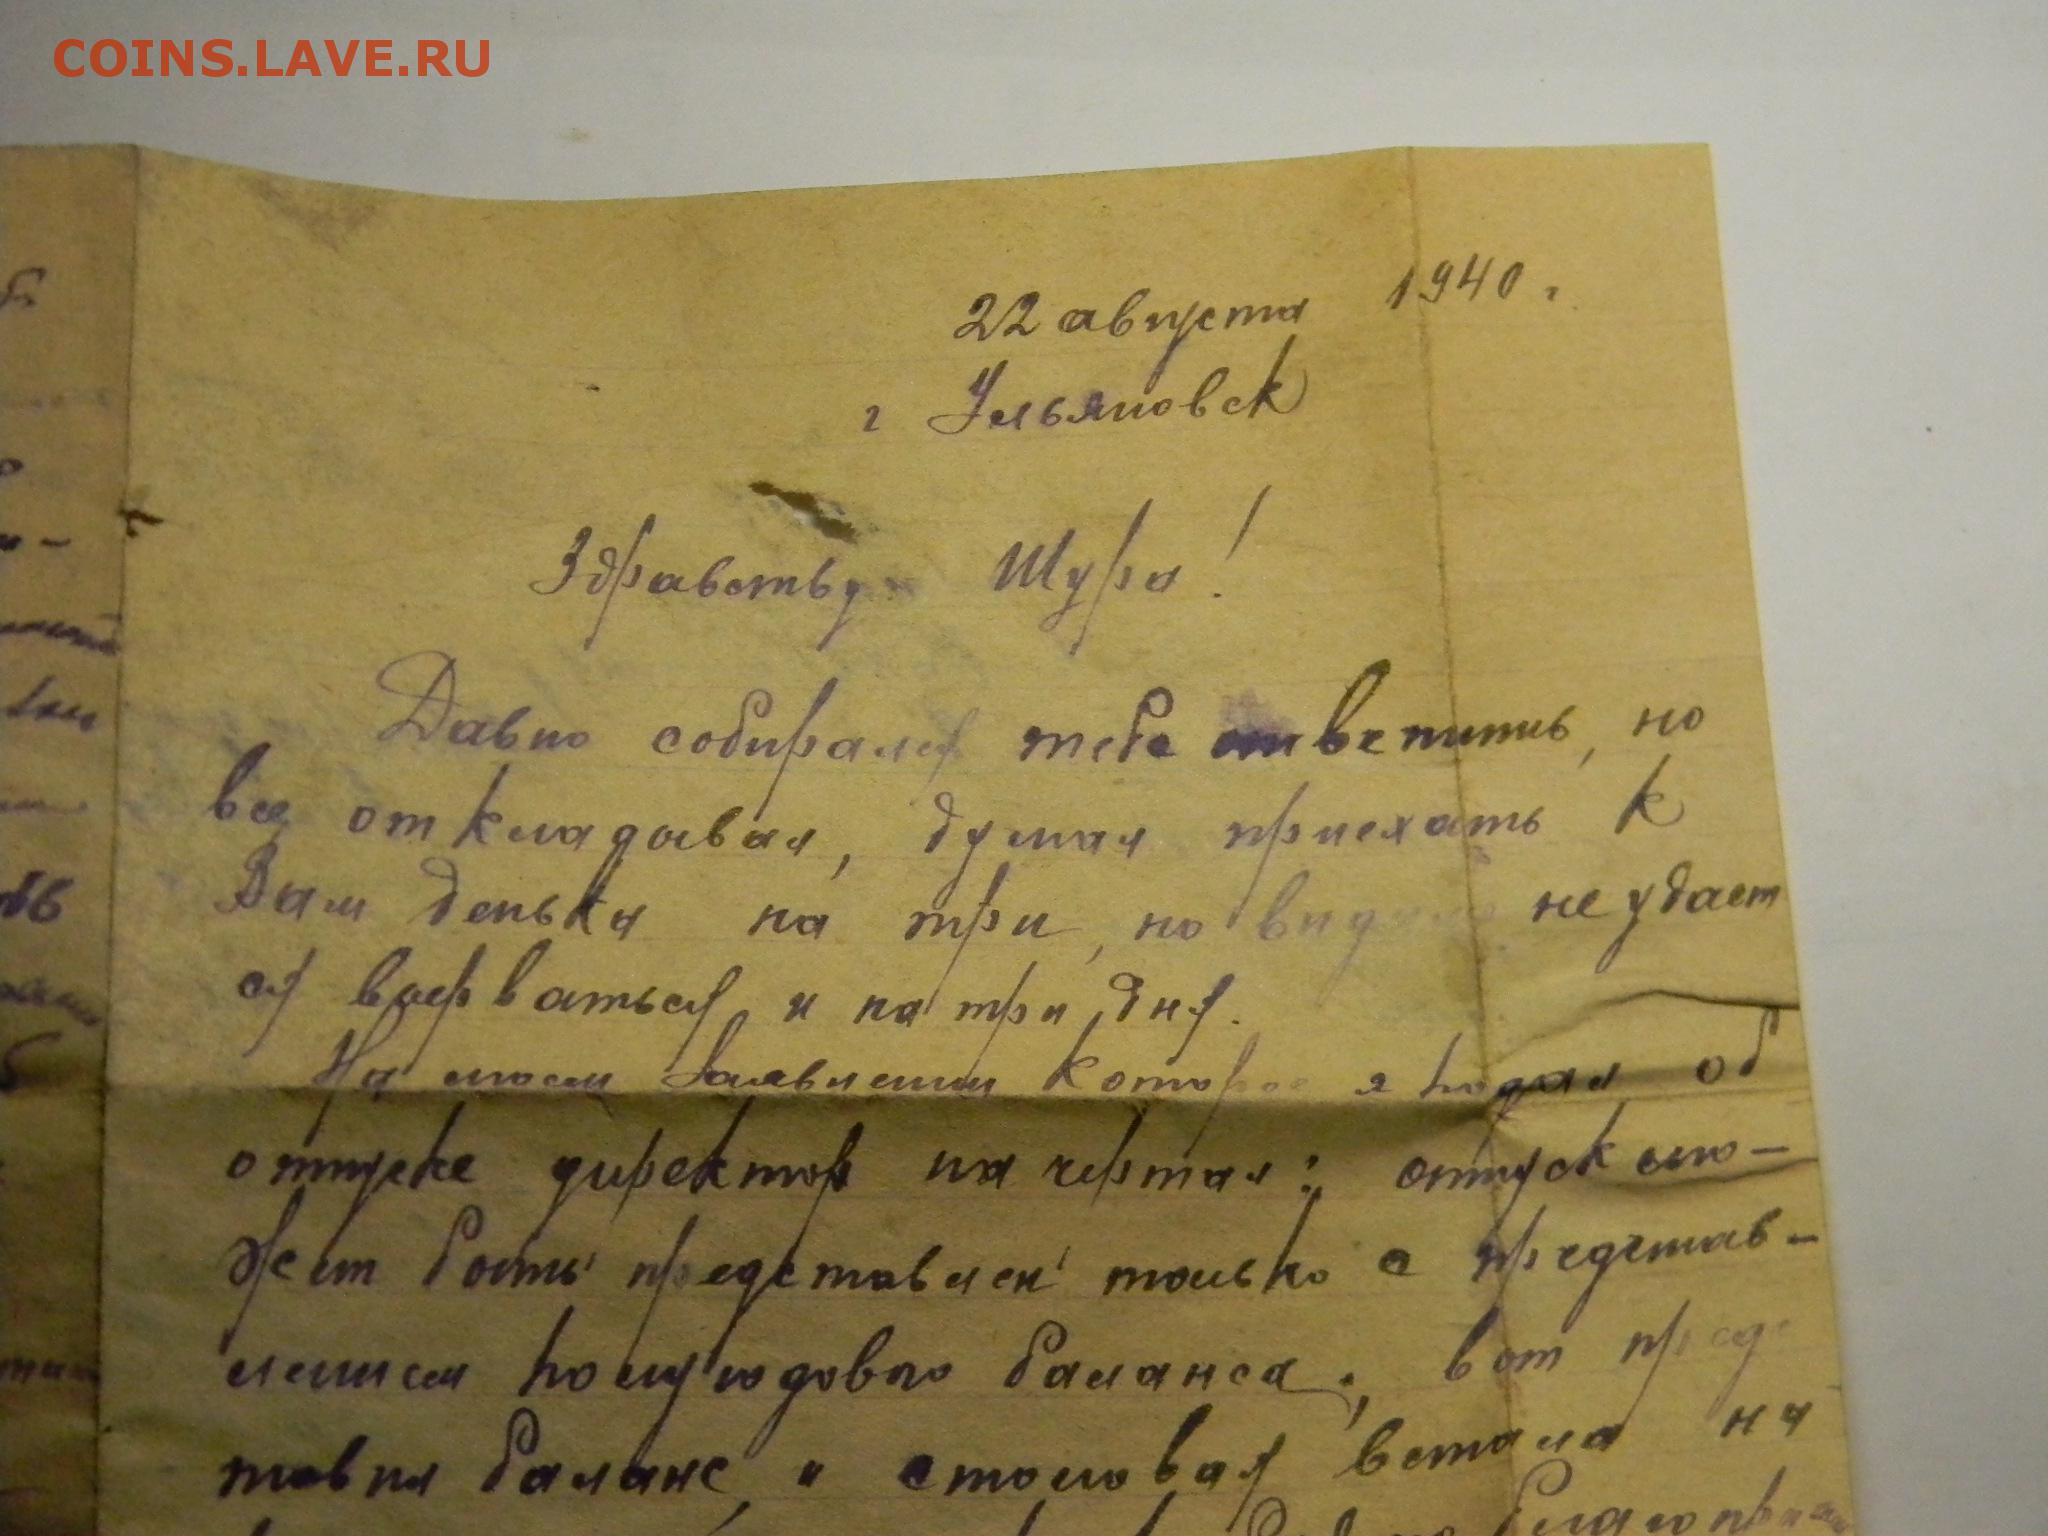 COINS.LAVE.RU
22 августа 1940 г.
г Ульяновск
Здравствуй Шура!
Давно собирался тебе ответить, но
все откладывал, думал приехать к
Вам денька на три, но видимо не удает
ся вырваться и на три дня.
На моем заявлении которое я подал об
отпуске директор начертал: отпуск мо-
жет быть представлен только с представ-
лением полугодового баланса, вот предс
тавил баланс, и столовая встала на